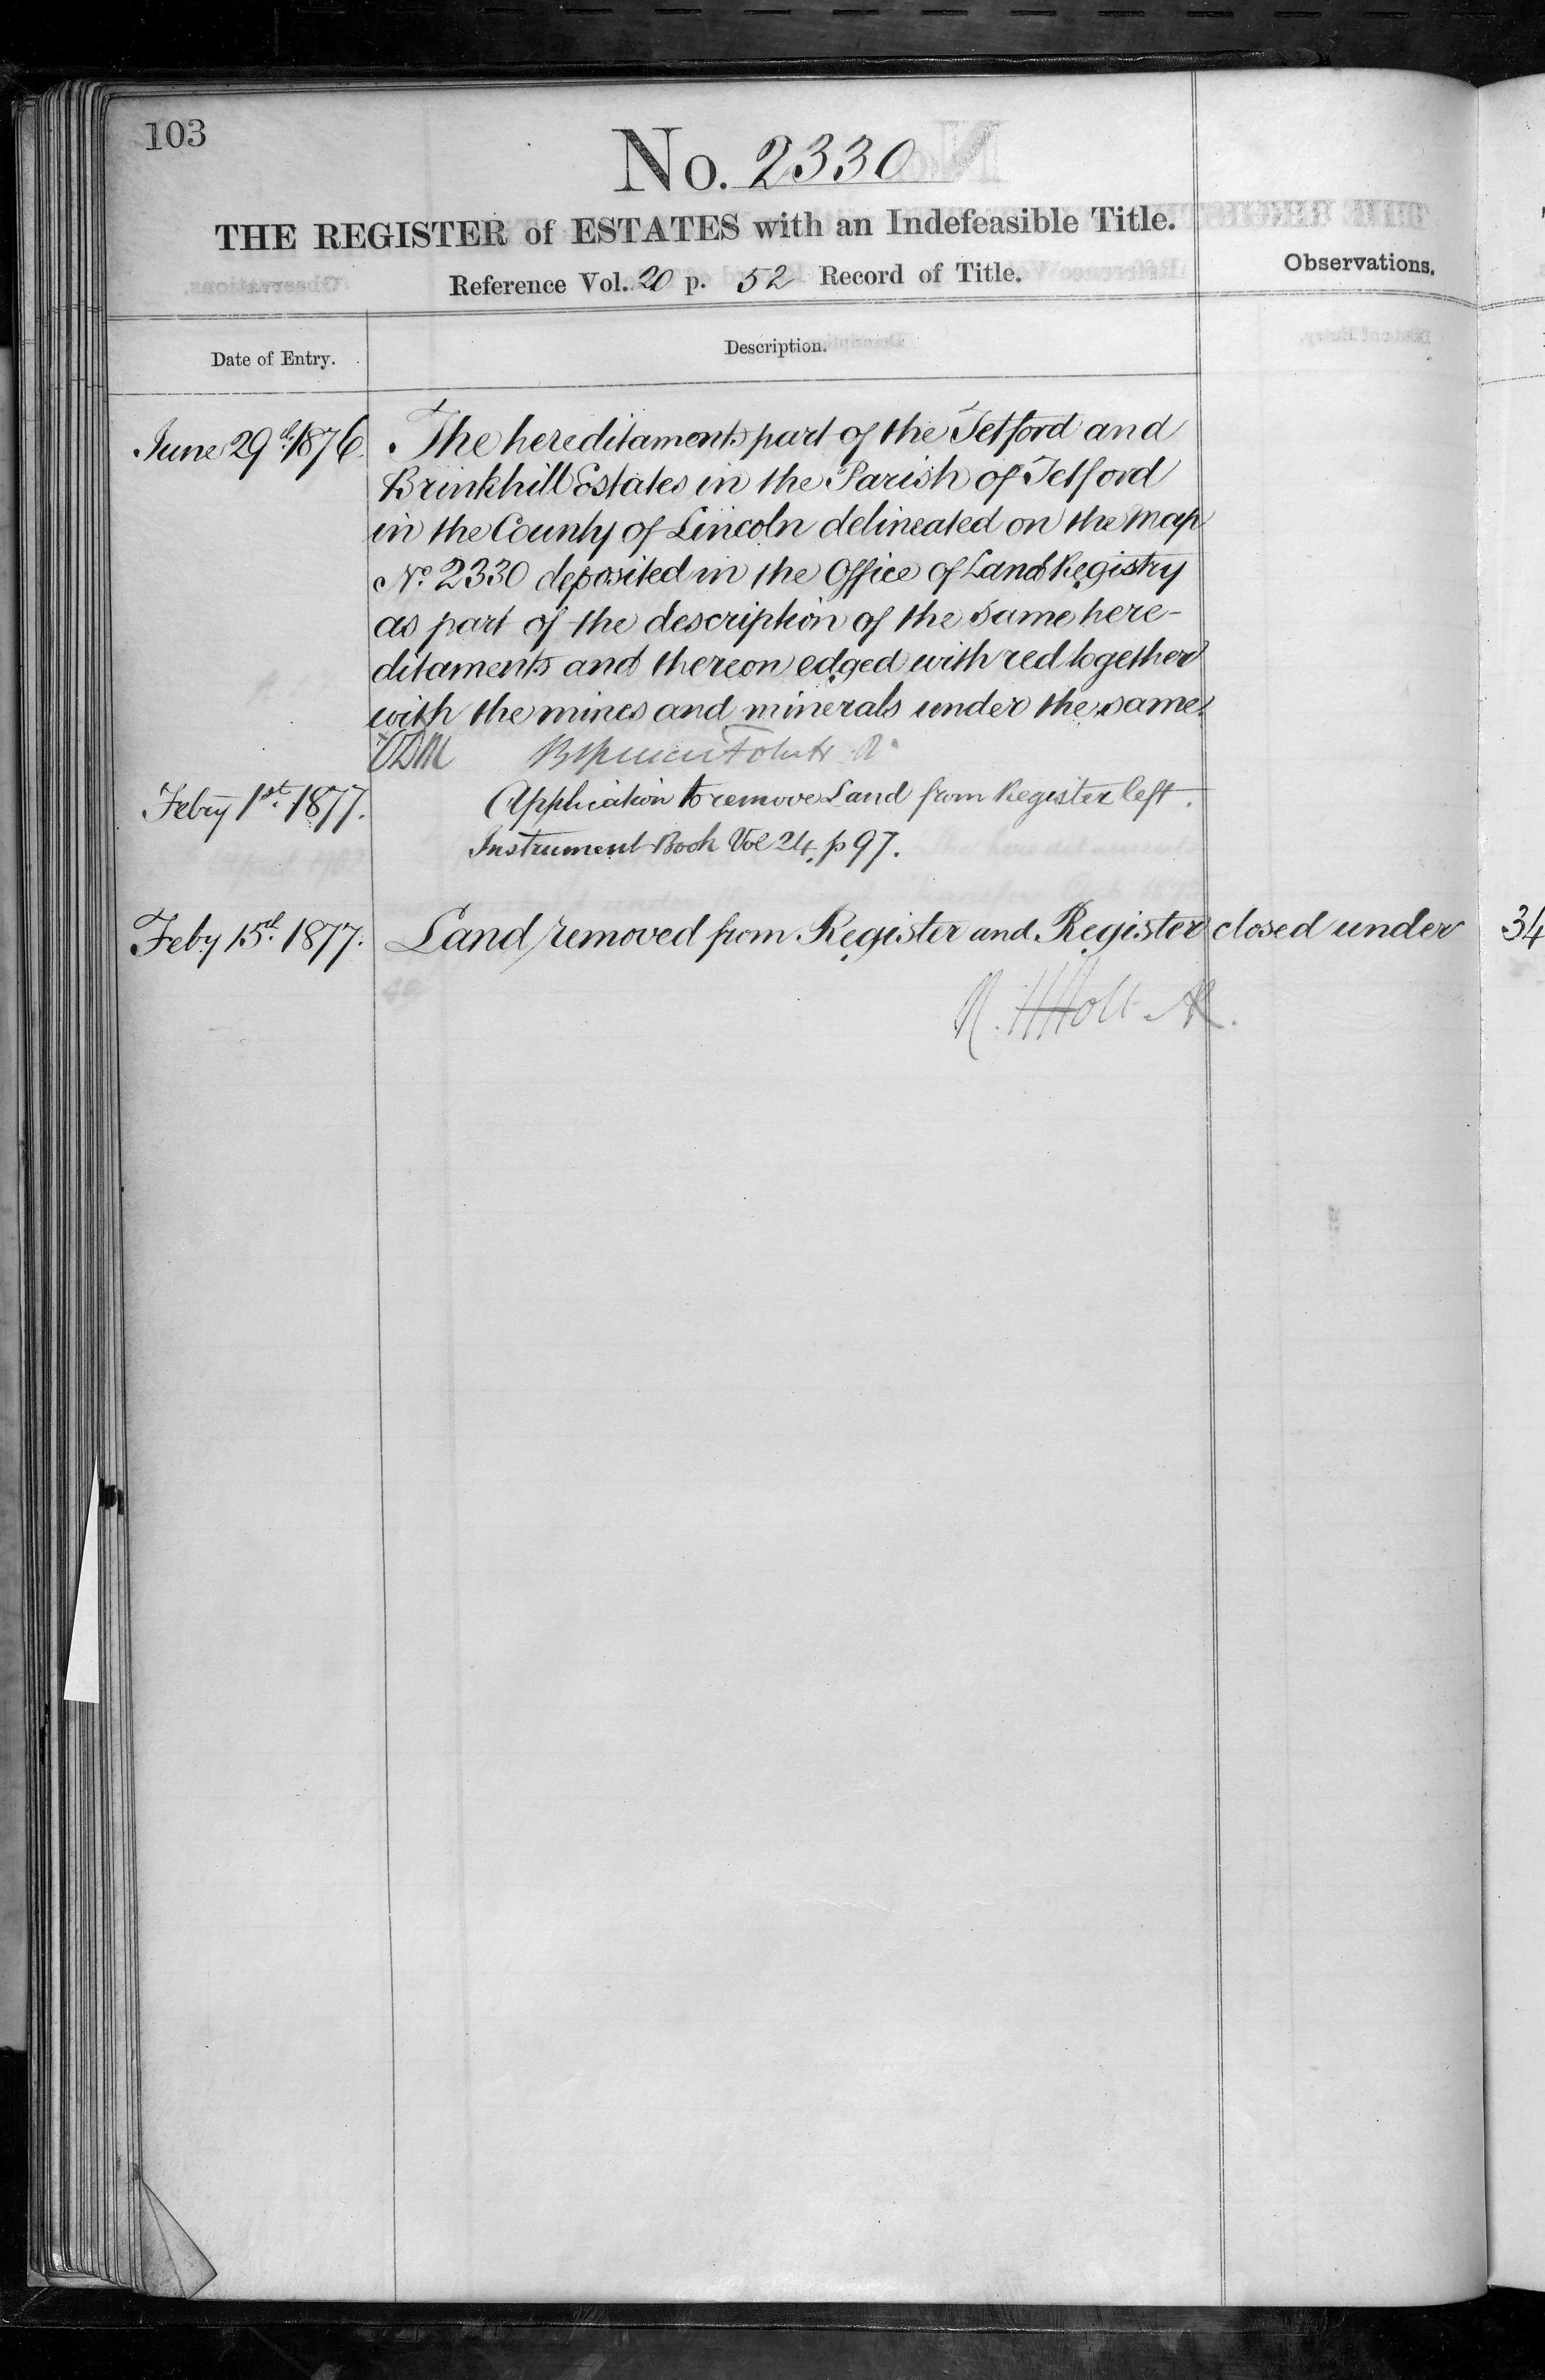 103
No. 2330
THE REGISTER of ESTATES with an Indefeasible Title.
Reference Vol. 20 p. 52 Record of Title.
Observations.
Date of Entry.
Description.
June 29th. 1876. The hereditaments part of the Tetford and
Brinkhill Estates in the Parish of Tetford
in the County of Lincoln delineated on the Map
No. 2330 deposited in the Office of Land Registry
as part of the description of the same here-
ditaments and thereon edged with red together
with the mines and minerals under the same.
Febry 1st. 1877. Application to remove Land from Register left.
Instrument Book Vol 24, p 97.
Feby 15th. 1877. Land removed from Register and Register closed under 34
R. H Holt AR.